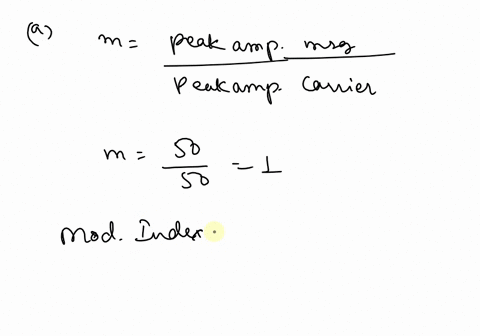 (a) m = peak amp. msg
Peak amp. Carrier
m = 50
50 = 1
Mod. Index